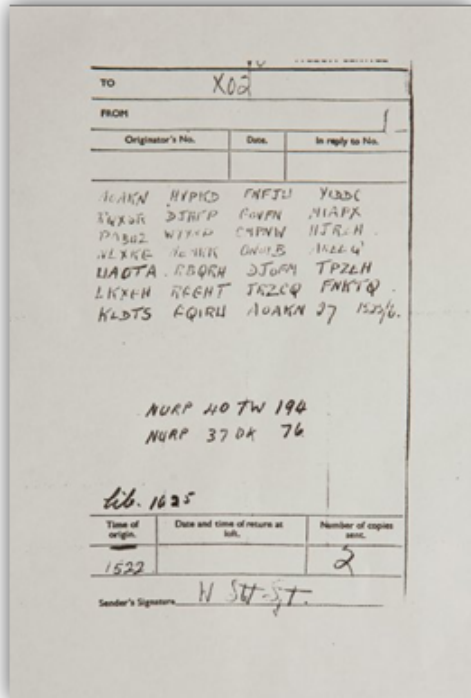 TO X02
FROM
Originator's No. Date. In reply to No.
AOAKN HVPKD FNFJW YIDDC
RQXSR DJHFP GOVFN MIAPX
PABUZ WYYNP CMPNW HJRZH
NLXKG MEMKK ONOIB AKEEQ
UAOTA RBQRH DJOFM TPZEH
LKXGH RGGHT JRZCQ FNKTQ
KLDTS FQIRU AOAKN 27 1525/6.
NURP 40 TW 194
NURP 37 DK 76
lib. 1625
Time of origin. Date and time of return at loft. Number of copies sent.
1522 2
Sender's Signature W Stot Sjt.